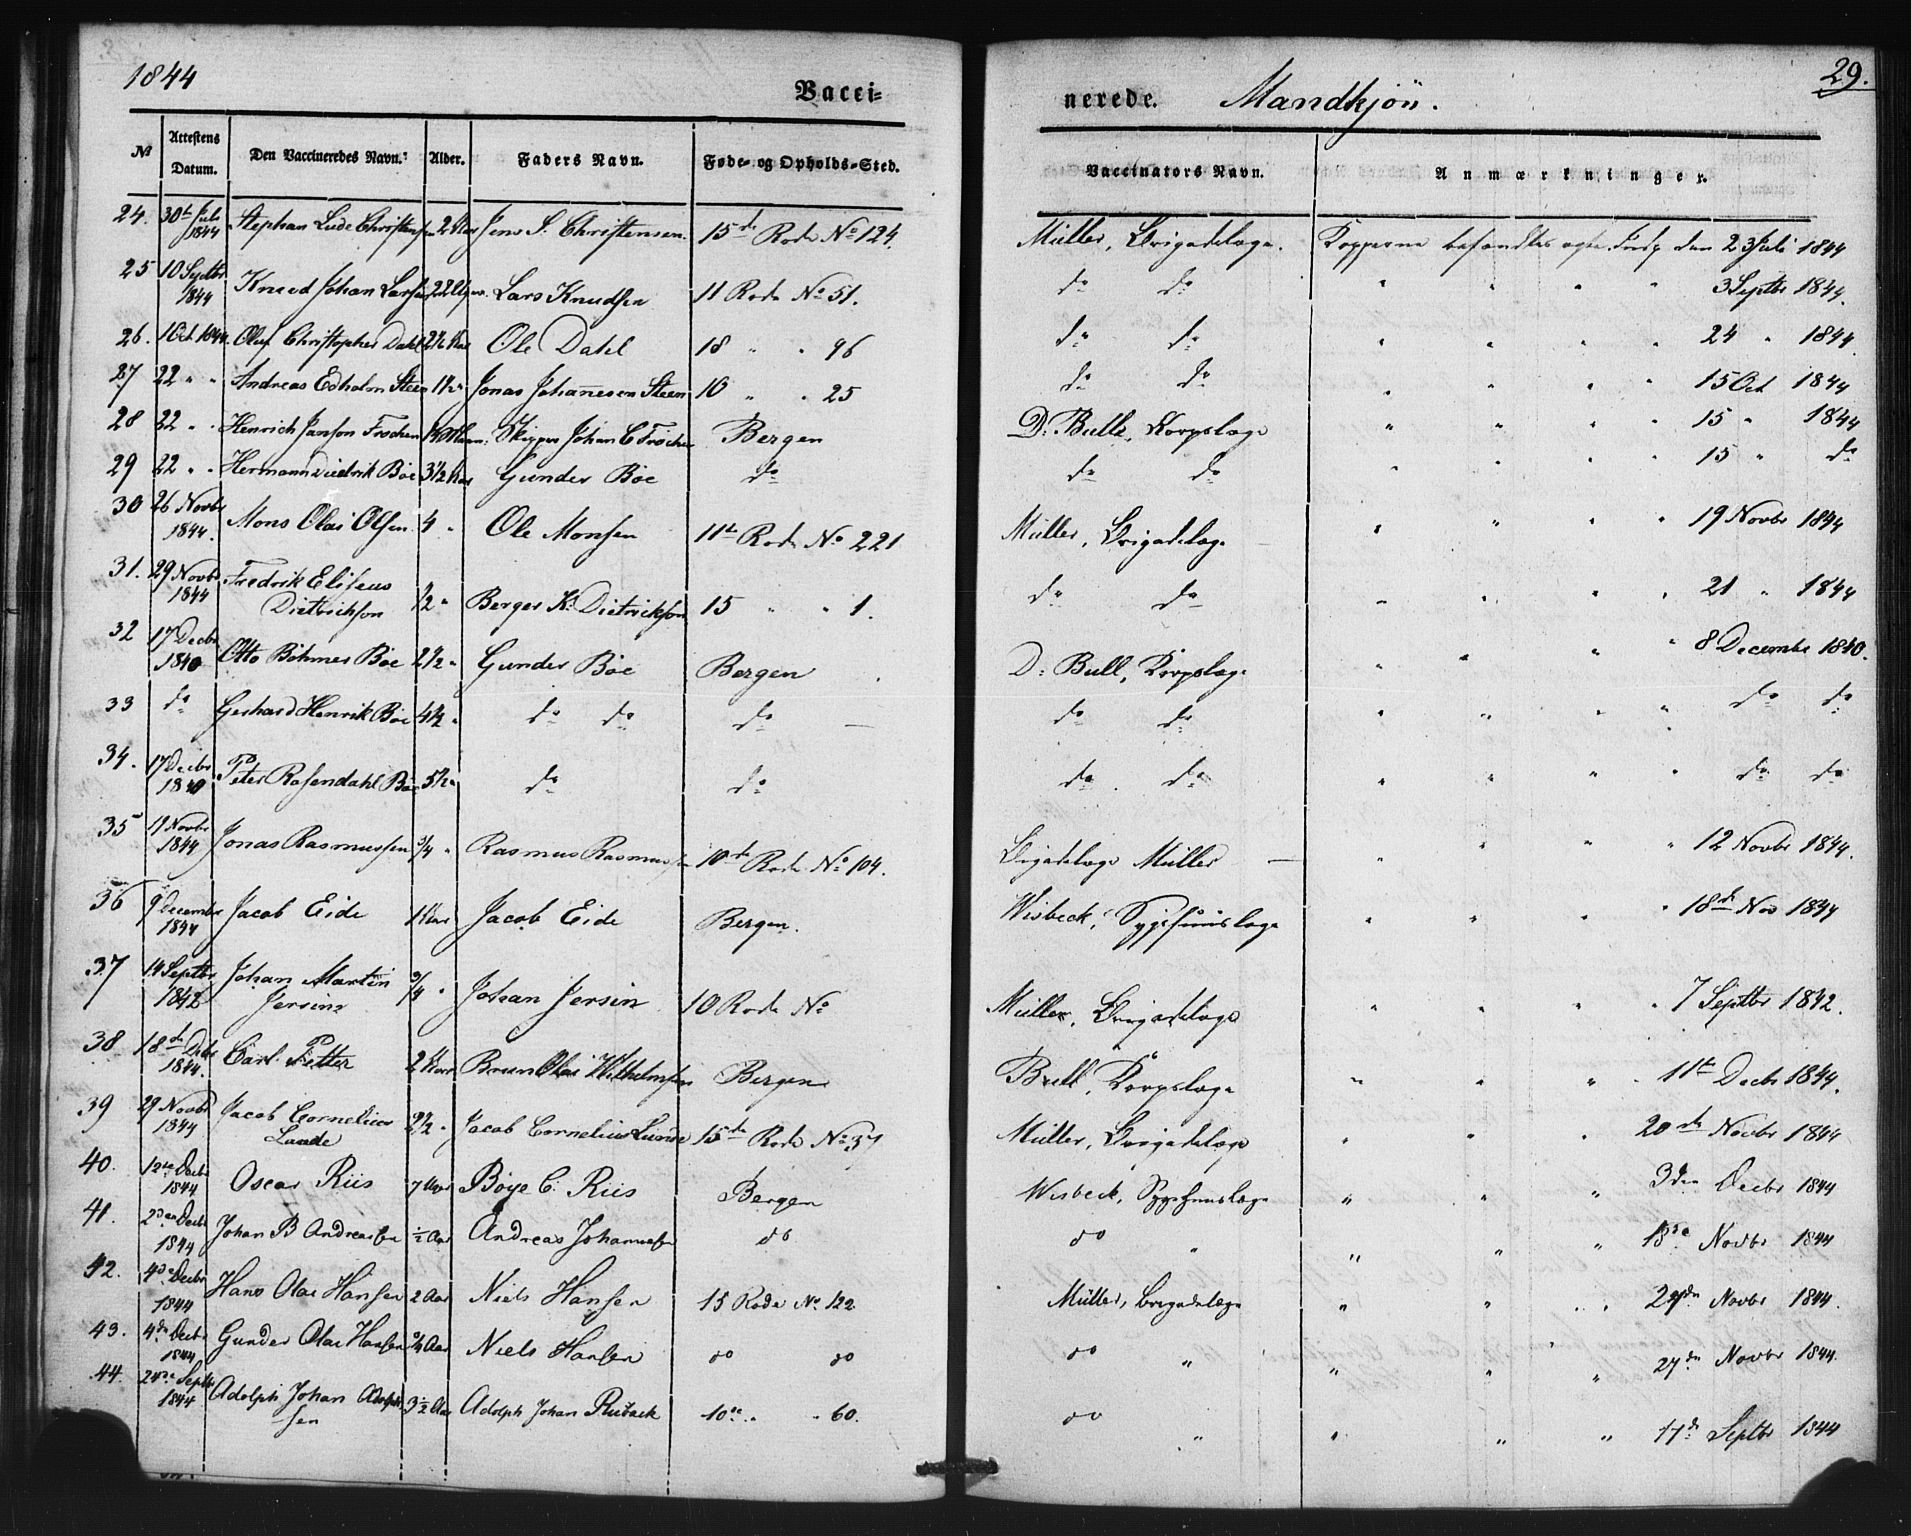 1844
Vacci=
nerede. Mandkjön.
29.
№ Attestens Datum. Den Vaccineredes Navn. Alder. Faders Navn. Føde- og Opholds-Sted. Vaccinators Navn. Anmærkninger.
24. 30te Juli 1844 Stephan Lude Christensen 2 Aar Jens S. Christensen. 15de Rode No 124. Müller, Brigadelæge. Kopperne befandtes ægte Insp den 23 Juli 1844
25 10 Septbr 1844 Knud Johan Larsen 22 Uger. Lars Knudsen 11 Rode No 51. do do " " " " 3 Septbr 1844.
26. 1 Oct 1844. Oluf Christopher Dahl 2½ Aar Ole Dahl 18 " " 96 do do " " " " 24 " 1844.
27 22 " " Andreas Edholm Steen 1½ " Jonas Johannesen Steen 10 " " 25 do do " " " " 15 Oct 1844
28 22 " " Henrich Janson Frochen Skipper Johan C Frochen Bergen D: Bull, Korpslæge " " " " 15 " 1844
29 22 " " Hermann Diedrik Böe 3½ Aar Gunder Böe do do do " " " " 15 " do
30 26 Novbr 1844. Mons Olai Olsen 4 " Ole Monsen 11te Rode No 221 Müller, Brigadelæge " " " " 19 Novbr 1844
31. 29 Novbr 1844 Fredrik Eliseus
Dietrichson ½ " Berger K. Dietrichson 15 " " 1. do do " " " " 21 " 1844
32 17 Decbr 1840 Otto Böhmer Böe 2½ " Gunder Böe Bergen D: Bull, Korpslæge " " " " 8 Decembr 1840.
33 do Gerhard Henrik Böe 4½ " do do do do do " " " " do do
34. 17 Decbr 1840 Peter Rosendahl Böe 5½ " do do do do " " " " do do
35 19 Novbr 1844 Jonas Rasmussen ¾ " Rasmus Rasmussen 10de Rode No 104. Brigadelæge Müller " " " " 12 Novbr 1844.
36 9 Decembr 1844 Jacob Eide 1 Aar Jacob Eide Bergen. Wisbeck, Sygehuuslæge " " " " 18de Nov 1844
37 14 Septbr 1842 Johan Martin
Jersin ¾ " Johan Jersin 10 Rode No Müller, Brigadelæge " " " " 7 Septbr 1842.
38 18de Dcbr 1844. Carl Petter 2 Aar Brun Olai Wilhelmsen Bergen Bull, Korpslæge " " " " 11te Decbr 1844.
39 29 Novbr 1844 Jacob Cornelius
Lunde 2½ " Jacob Cornelius Lunde 15de Rode No 37 Müller, Brigadelæge " " " 20de Novbr 1844
40. 12te Decbr 1844 Oscar Riis 7 Aar Böye C. Riis Bergen Wisbeck, Sygehuuslæge " " " 3den Decbr 1844
41. 2den Decbr 1844 Johan B Andreassen ½ Aar Andreas Johannesen do do " " " " 13de Novbr 1844
42. 4de Decbr 1844 Hans Olai Hansen 2 Aar Niels Hansen 15 Rode No 122 Müller, Brigadelæge " " " 27de Novbr 1844.
43. 4de Decbr 1844 Gunder Olai Hansen ¾ Aar Niels Hansen do do do " " " " 27de Novbr 1844.
44. 24de Septbr 1844 Adolph Johan Adolph-
sen 3½ Aar Adolph Johan Rubach 10de " " 60. do " " " " 17de Septbr 1844